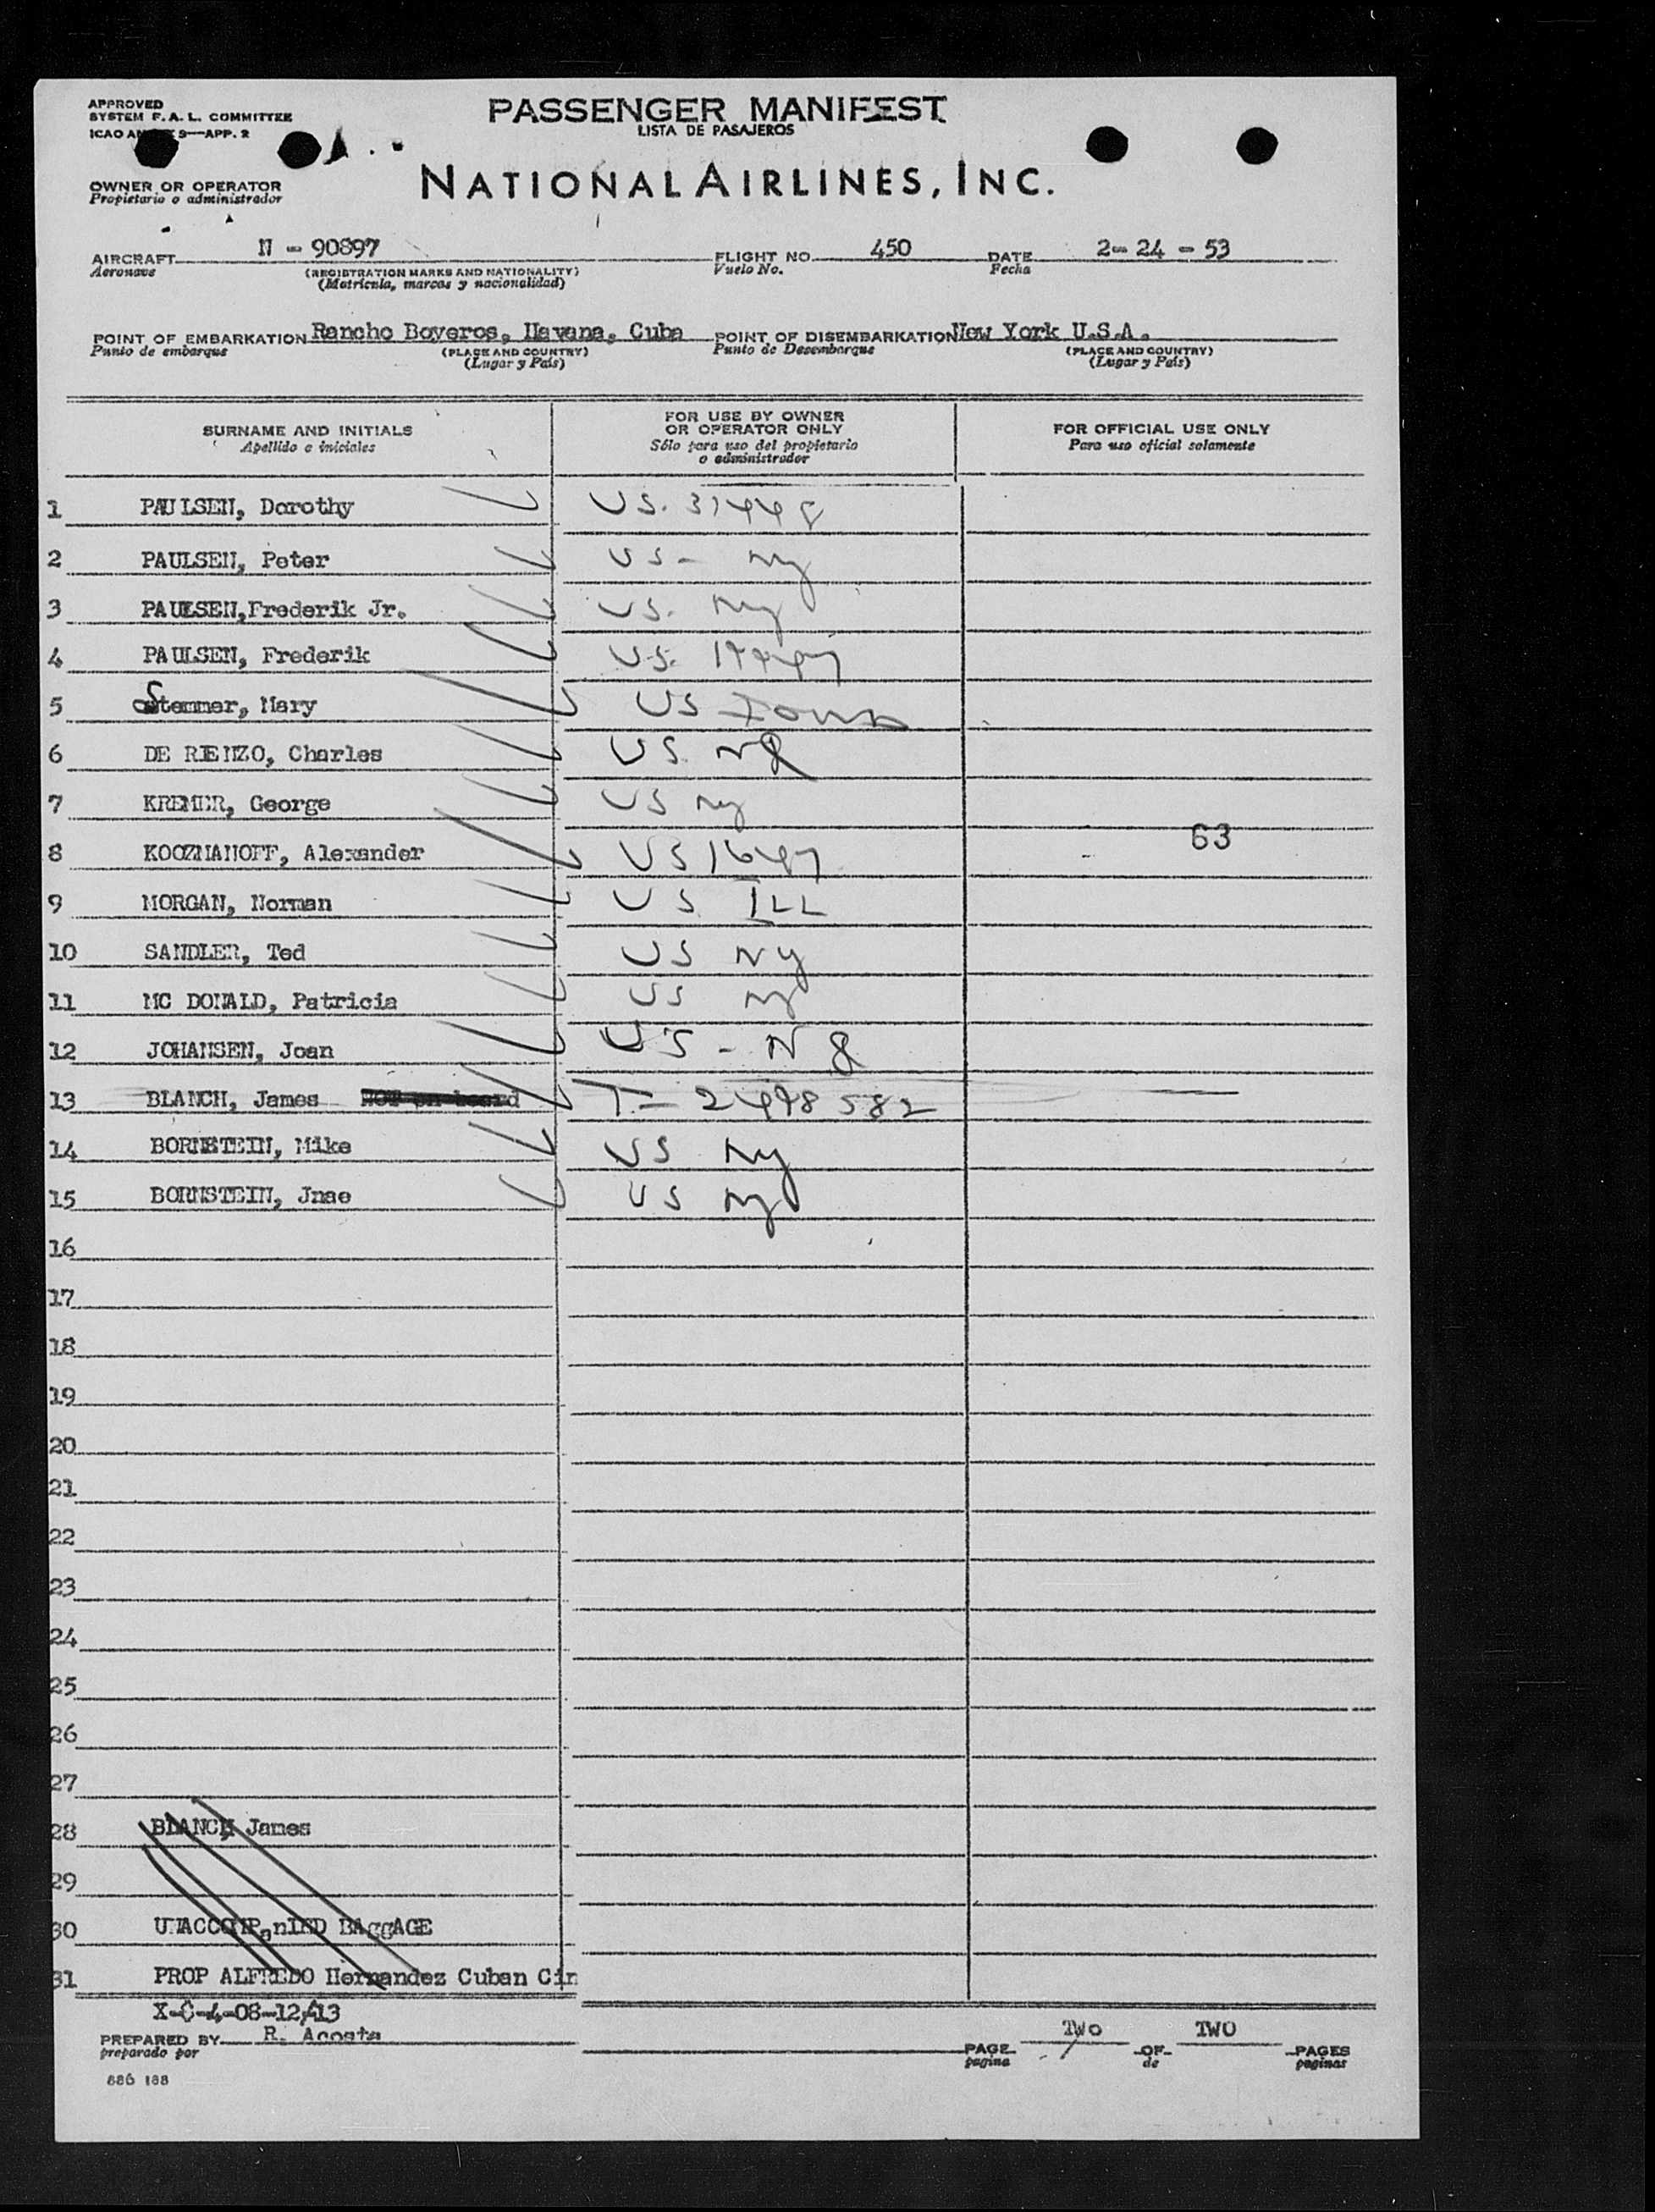 APPROVED
SYSTEM F. A. L. COMMITTEE
ICAO 9—APP. 2
PASSENGER MANIFEST
LISTA DE PASAJEROS
OWNER OR OPERATOR
Propietario o administrador
NATIONAL AIRLINES, INC.
AIRCRAFT N - 90897 FLIGHT NO. 450 DATE 2- 24 - 53
Aeronave (REGISTRATION MARKS AND NATIONALITY) Vuelo No. Fecha
(Matrícula, marcas y nacionalidad)
POINT OF EMBARKATION Rancho Boyeros, Havana, Cuba POINT OF DISEMBARKATION New York U.S.A.
Punto de embarque (PLACE AND COUNTRY) Punto de Desembarque (PLACE AND COUNTRY)
(Lugar y País) (Lugar y País)
SURNAME AND INITIALS
Apellido e iniciales
FOR USE BY OWNER
OR OPERATOR ONLY
Sólo para uso del propietario
o administrador
FOR OFFICIAL USE ONLY
Para uso oficial solamente
1 PAULSEN, Dorothy US.
2 PAULSEN, Peter US- Ny
3 PAULSEN,Frederik Jr. US. Ny
4 PAULSEN, Frederik US.
5 Stemmer, Mary US Iowa
6 DE RIENZO, Charles US
7 KREMER, George US Ny
63
8 KOOZMANOFF, Alexander US
9 MORGAN, Norman US ILL
10 SANDLER, Ted US NY
11 MC DONALD, Patricia US Ny
12 JOHANSEN, Joan US -
13 BLANCH, James NOT on board T- 2498582
14 BORNSTEIN, Mike US Ny
15 BORNSTEIN, Jnae US Ny
16
17
18
19
20
21
22
23
24
25
26
27
28 BLANCH, James
29
30 UNACCOMPanIED BAggAGE
31 PROP ALFREDO Hernandez Cuban Cin
X-C-4-08-12/413
PREPARED BY R. Acosta
preparado por
PAGE TWo OF TWO PAGES
pagina de paginas
886 188